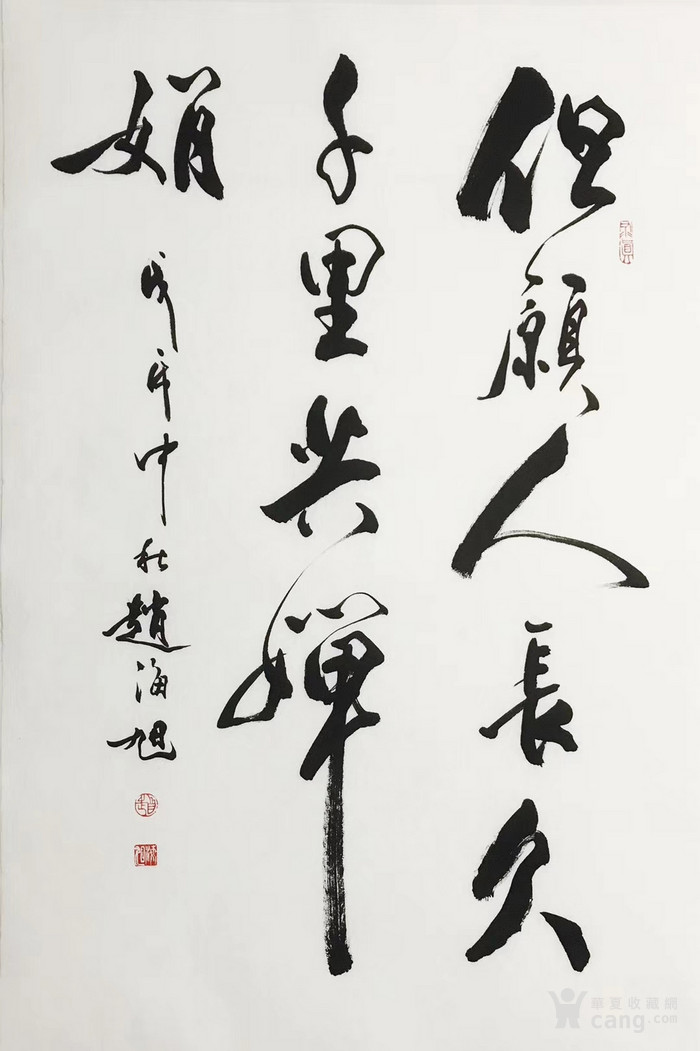 但願人長久
千里共嬋
娟
戊戌中秋趙海旭
華夏收藏網
cang.com